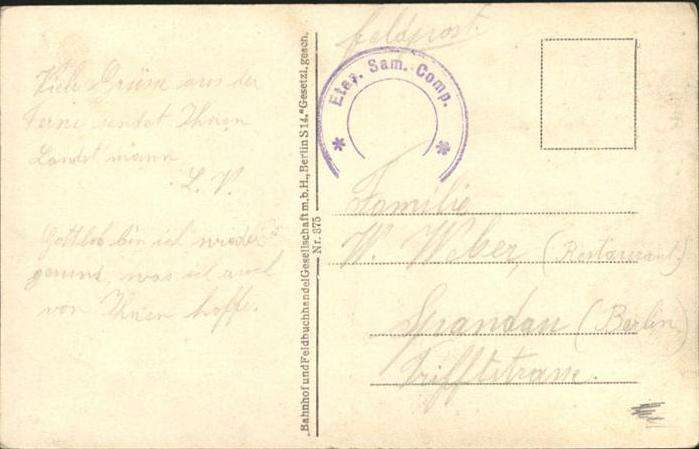 Feldpost.
Viele Grüsse aus der
Ferne sendet Ihnen
Landsmann
L. V.
Gottlob bin ich wieder
gesund, was ich auch
von Ihnen hoffe.
„Bahnhof und Feldbuchhandel Gesellschaft m.b.H., Berlin S 14.“ Gesetzl. gesch.
Nr. 375
* Etap. Sam. Comp. *
Familie
W. Weber, (Restaurant)
Spandau (Berlin)
Triftstrasse.